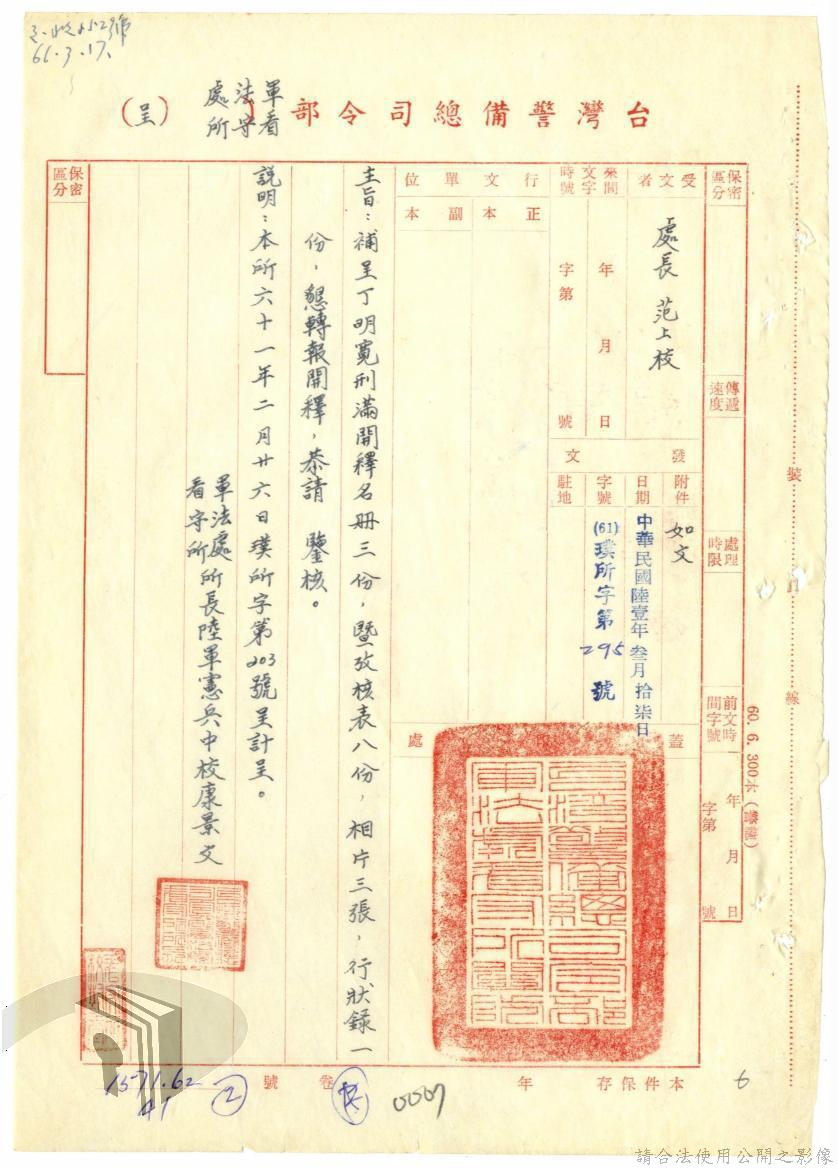 66.3.17.
台灣警備總司令部
軍法處
看守所
(呈)
保密區分
傳遞速度
處理時限
前文時間字號
年 月 日
字第 號
受文者
處長 范上校
來文時間字號
年 月 日
字第 號
行文單位
正本
副本
發文
附件
如文
日期
中華民國陸壹年叁月拾柒日
字號
(61)璞所字第295號
駐地
蓋
處
主旨：補呈丁明寬刑滿開釋名册三份，暨攷核表八份，相片三張，行狀錄一
份，懇轉報開釋，恭請 鑒核。
説明：本所六十一年二月廿六日璞所字第203號呈計呈。
軍法處
看守所
所長陸軍憲兵中校康景文
保密區分
裝
訂
線
本件保存 年
卷
號
0007
1571.62
41
2
6
請合法使用公開之影像